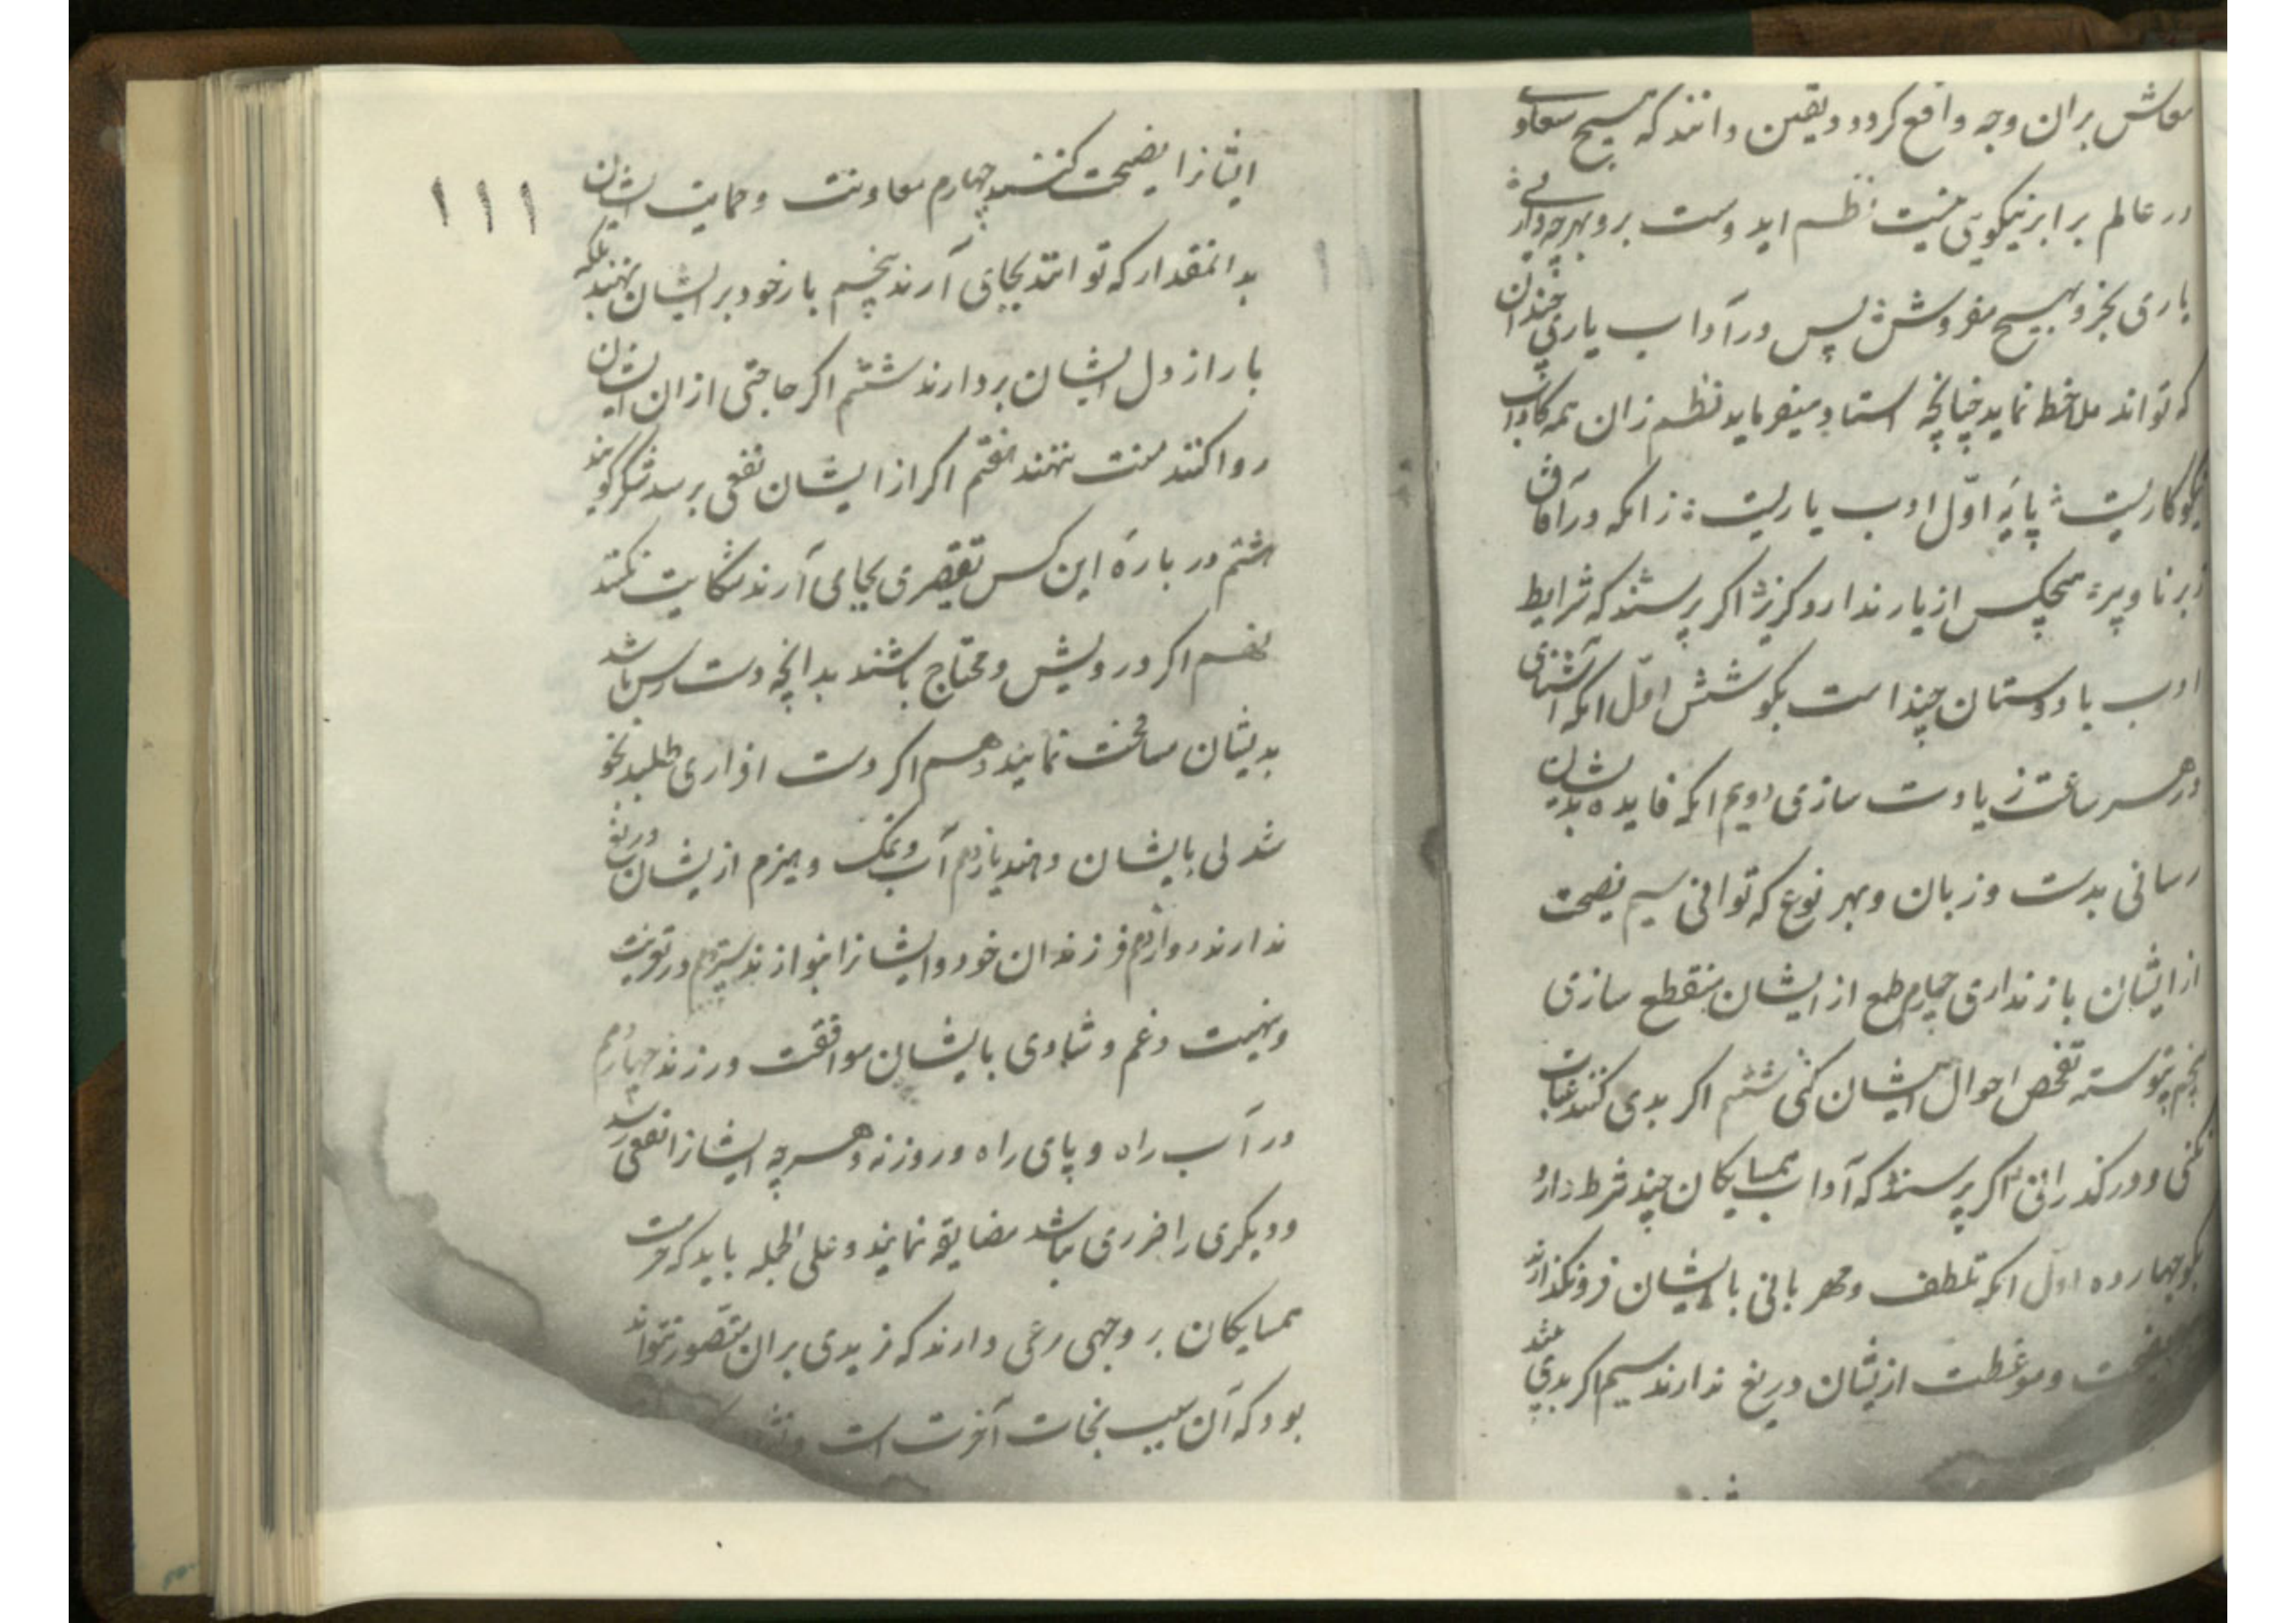 معاش بران وجه واقع کردد و یقین دانند که هیچ سعادتی
در عالم برابر نیکویی نیست نظم اید وست برو بهرچه داری
یاری بخر و بهیچ مفروش پس در آداب یاری چندان
که تواند ملاحظه نماید چنانچه استاد میفرماید نظم زان همه کاداب
نکوکاریست پایهٔ اوّل ادب یاریست زانکه در آفاق
ز برنا و پیر هیچکس از یار ندارد کزیر اکر پرسند که شرایط
ادب با دوستان چند است بکو شش اوّل انکه آشنایی
در هر ساعت زیادت سازی دویم انکه فایده بدیشان
رسانی بدست و زبان و بهر نوع که توانی سیم نصیحت
از ایشان باز نداری چهارم طمع از ایشان منقطع سازی
پنجم پیوسته تفحص احوال ایشان کنی ششم اکر بدی کنند عتاب
نکنی و درکذرانی اکر پرسند که آداب همسایکان چند شرط دارد
بکو چهارده اوّل انکه تلطف و مهربانی با ایشان فرونکذارند
نصیحت و موعظت ازیشان دریغ ندارند سیم اکر بدی
ایشانرا نصیحت کنند چهارم معاونت و حمایت ایشان
بدانمقدار که توانند بجای آرند پنجم بار خود بر ایشان ننهند بلکه
بار از دل ایشان بردارند ششم اکر حاجتی از ان ایشان
روا کنند منت ننهند هفتم اکر از ایشان نفعی برسد شکر کویند
هشتم در بارهٔ این کس تقصیری بجای آرند شکایت نکنند
نهم اکر درویش و محتاج باشند بدانچه دست رس باشد
بدیشان مسامحت نمایند دهم اکر دست افزاری طلبند بخو
شدلی بایشان دهند یازدهم آب و نمک و هیزم ازیشان دریغ
ندارند دوازدهم فرزندان خود و ایشانرا بنوازند سیزدهم در تعزیت
و تهنیت و غم و شادی با ایشان موافقت ورزند چهاردهم
در آب راه و پای راه و روزنه و هر چه ایشانرا نفعی رسد
و دیکری را ضرری نباشد مضایقه نمایند و علی الجمله باید که حرمت
همسایکان بر وجهی رعی دارند که مزیدی بران متصور نتواند
بود که آن سبب نجات آخرت است
۱۱۱